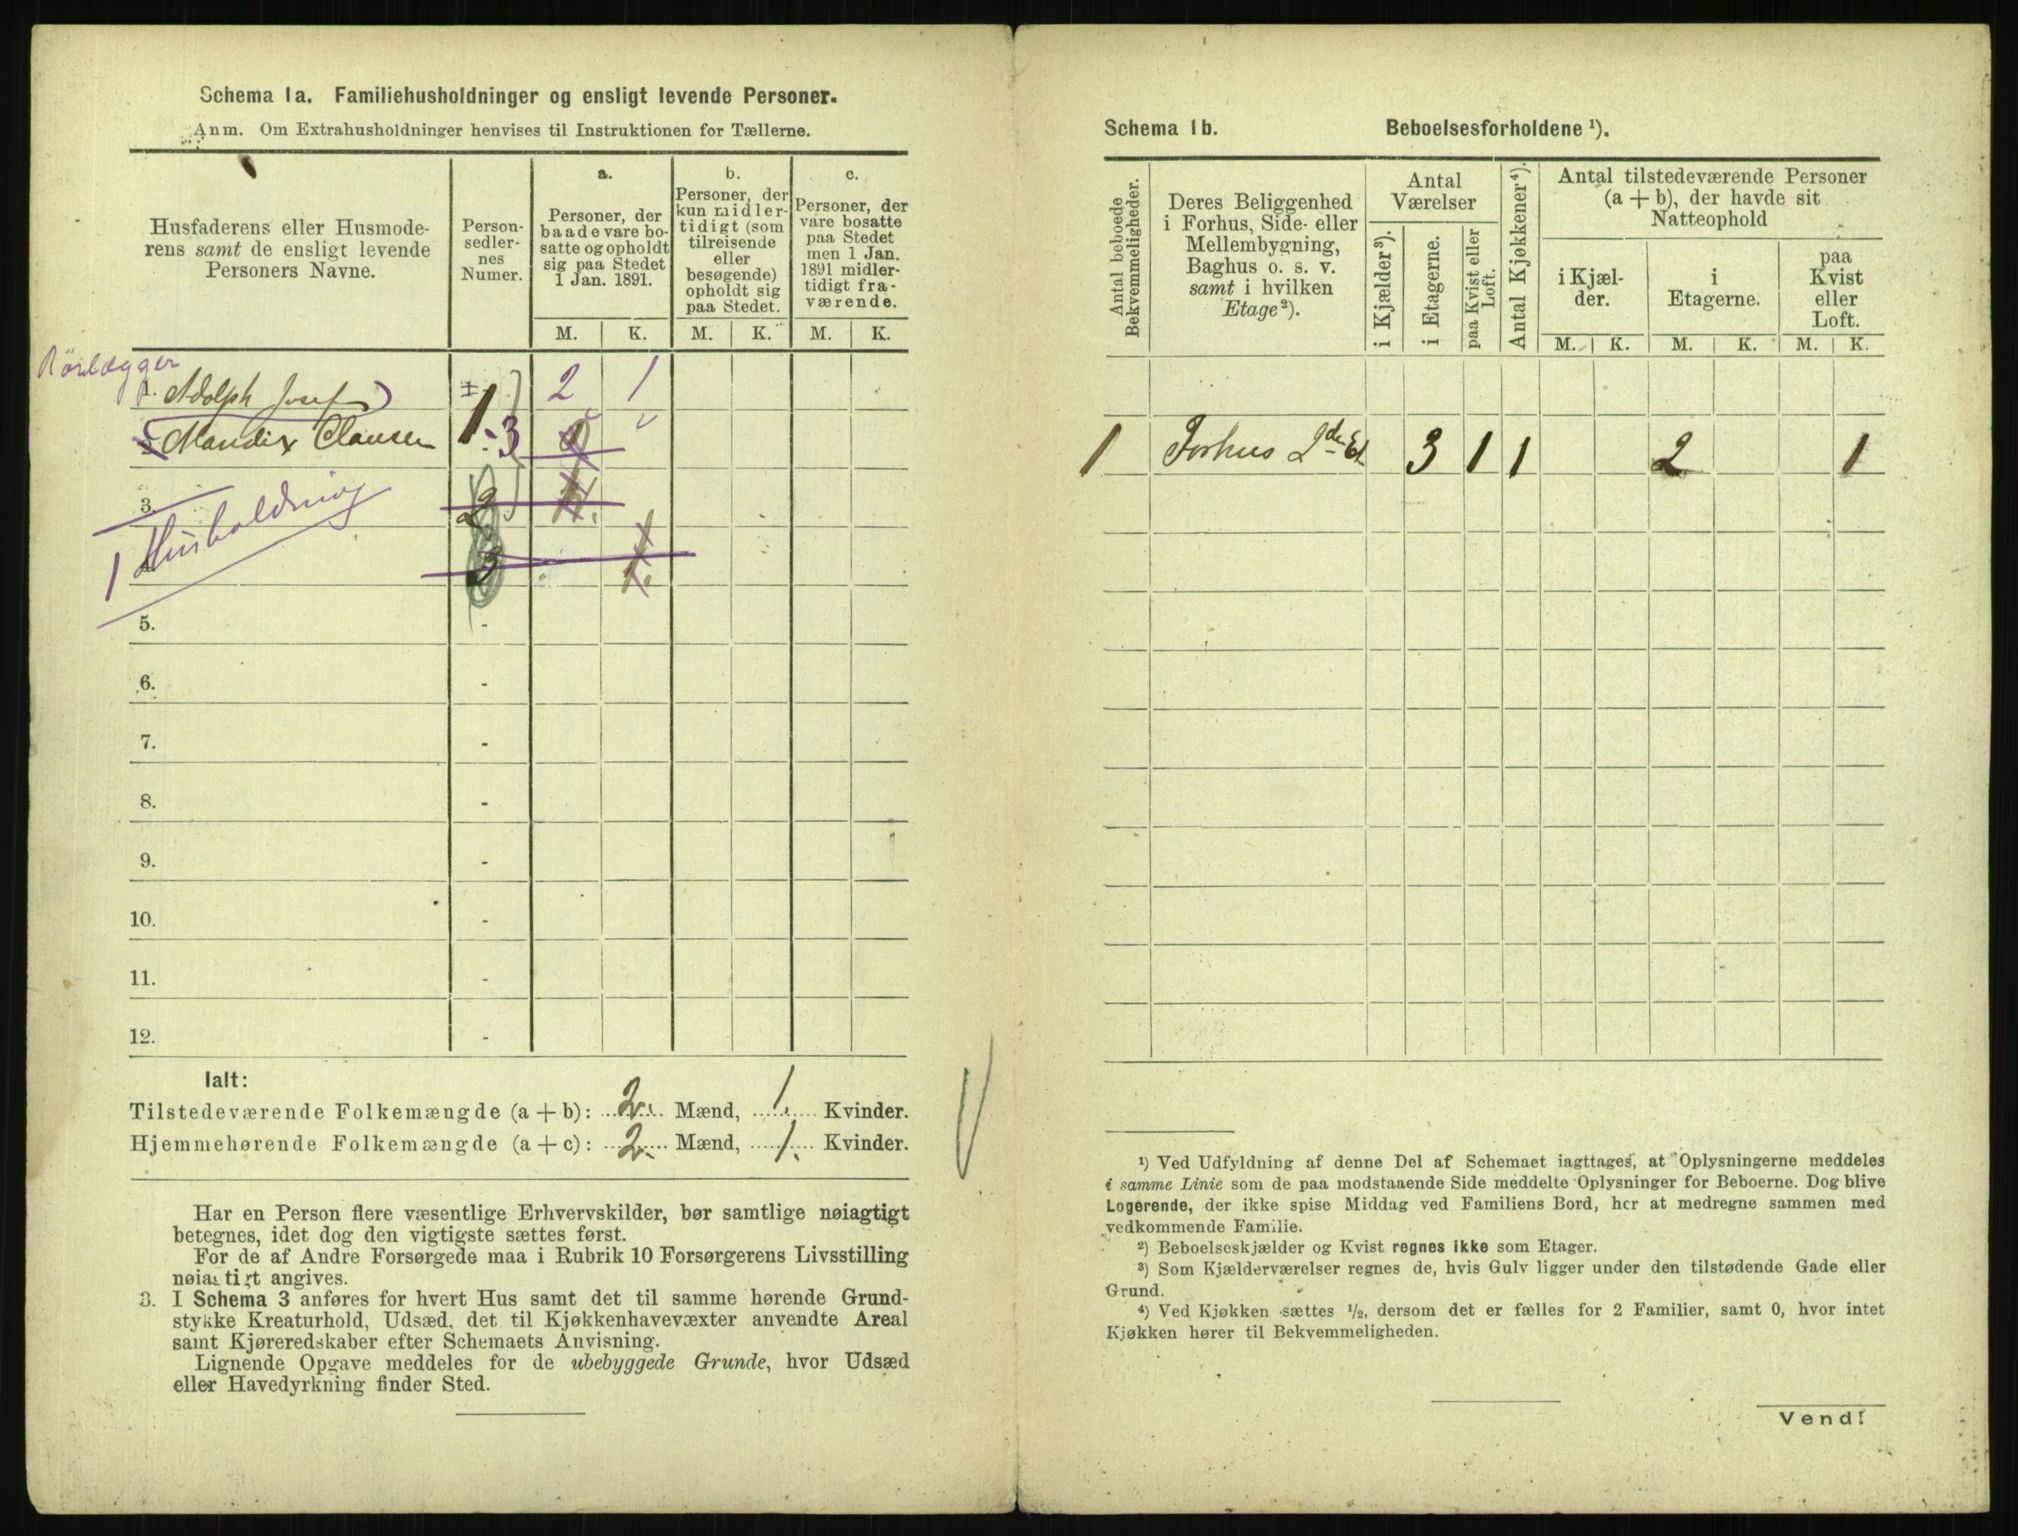 Schema 1a. Familiehusholdninger og ensligt levende Personer.
Anm. Om Extrahusholdninger henvises til Instruktionen for Tællerne.
Husfaderens eller Husmoderens samt de ensligt levende Personers Navne.
Personsedlernes Numer.
a.
Personer, der baade vare bosatte og opholdt sig paa Stedet 1 Jan. 1891.
b.
Personer, der kun midlertidigt (som tilreisende eller besøgende) opholdt sig paa Stedet.
c.
Personer, der vare bosatte paa Stedet men 1 Jan. 1891 midlertidigt fraværende.
M. K. M. K. M. K.
Rörlægger
1. Adolph Josef 2 1
Mandix Clausen 1-3
3. 2
1 Husholdning
3 1.
5. -
6. -
7. -
8. -
9. -
10. -
11. -
12. -
Ialt:
Tilstedeværende Folkemængde (a + b): 2. Mænd, 1. Kvinder.
Hjemmehørende Folkemængde (a + c): 2. Mænd, 1. Kvinder.
Har en Person flere væsentlige Erhvervskilder, bør samtlige nøiagtigt
betegnes, idet dog den vigtigste sættes først.
For de af Andre Forsørgede maa i Rubrik 10 Forsørgerens Livsstilling
nøiagtigt angives.
3. I Schema 3 anføres for hvert Hus samt det til samme hørende Grund-
stykke Kreaturhold, Udsæd, det til Kjøkkenhavevæxter anvendte Areal
samt Kjøreredskaber efter Schemaets Anvisning.
Lignende Opgave meddeles for de ubebyggede Grunde, hvor Udsæd
eller Havedyrkning finder Sted.
Schema 1b. Beboelsesforholdene ¹).
Antal beboede Bekvemmeligheder.
Deres Beliggenhed i Forhus, Side- eller Mellembygning, Baghus o. s. v. samt i hvilken Etage²).
Antal Værelser
i Kjælder³).
i Etagerne.
paa Kvist eller Loft.
Antal Kjøkkener⁴).
Antal tilstedeværende Personer (a + b), der havde sit Natteophold
i Kjælder.
i Etagerne.
paa Kvist eller Loft.
M. K. M. K. M. K.
1 Forhus 2de Et 3 1 1 2 1
¹) Ved Udfyldning af denne Del af Schemaet iagttages, at Oplysningerne meddeles
i samme Linie som de paa modstaaende Side meddelte Oplysninger for Beboerne. Dog blive
Logerende, der ikke spise Middag ved Familiens Bord, her at medregne sammen med
vedkommende Familie.
²) Beboelseskjælder og Kvist regnes ikke som Etager.
³) Som Kjælderværelser regnes de, hvis Gulv ligger under den tilstødende Gade eller
Grund.
⁴) Ved Kjøkken sættes ½, dersom det er fælles for 2 Familier, samt 0, hvor intet
Kjøkken hører til Bekvemmeligheden.
Vend!